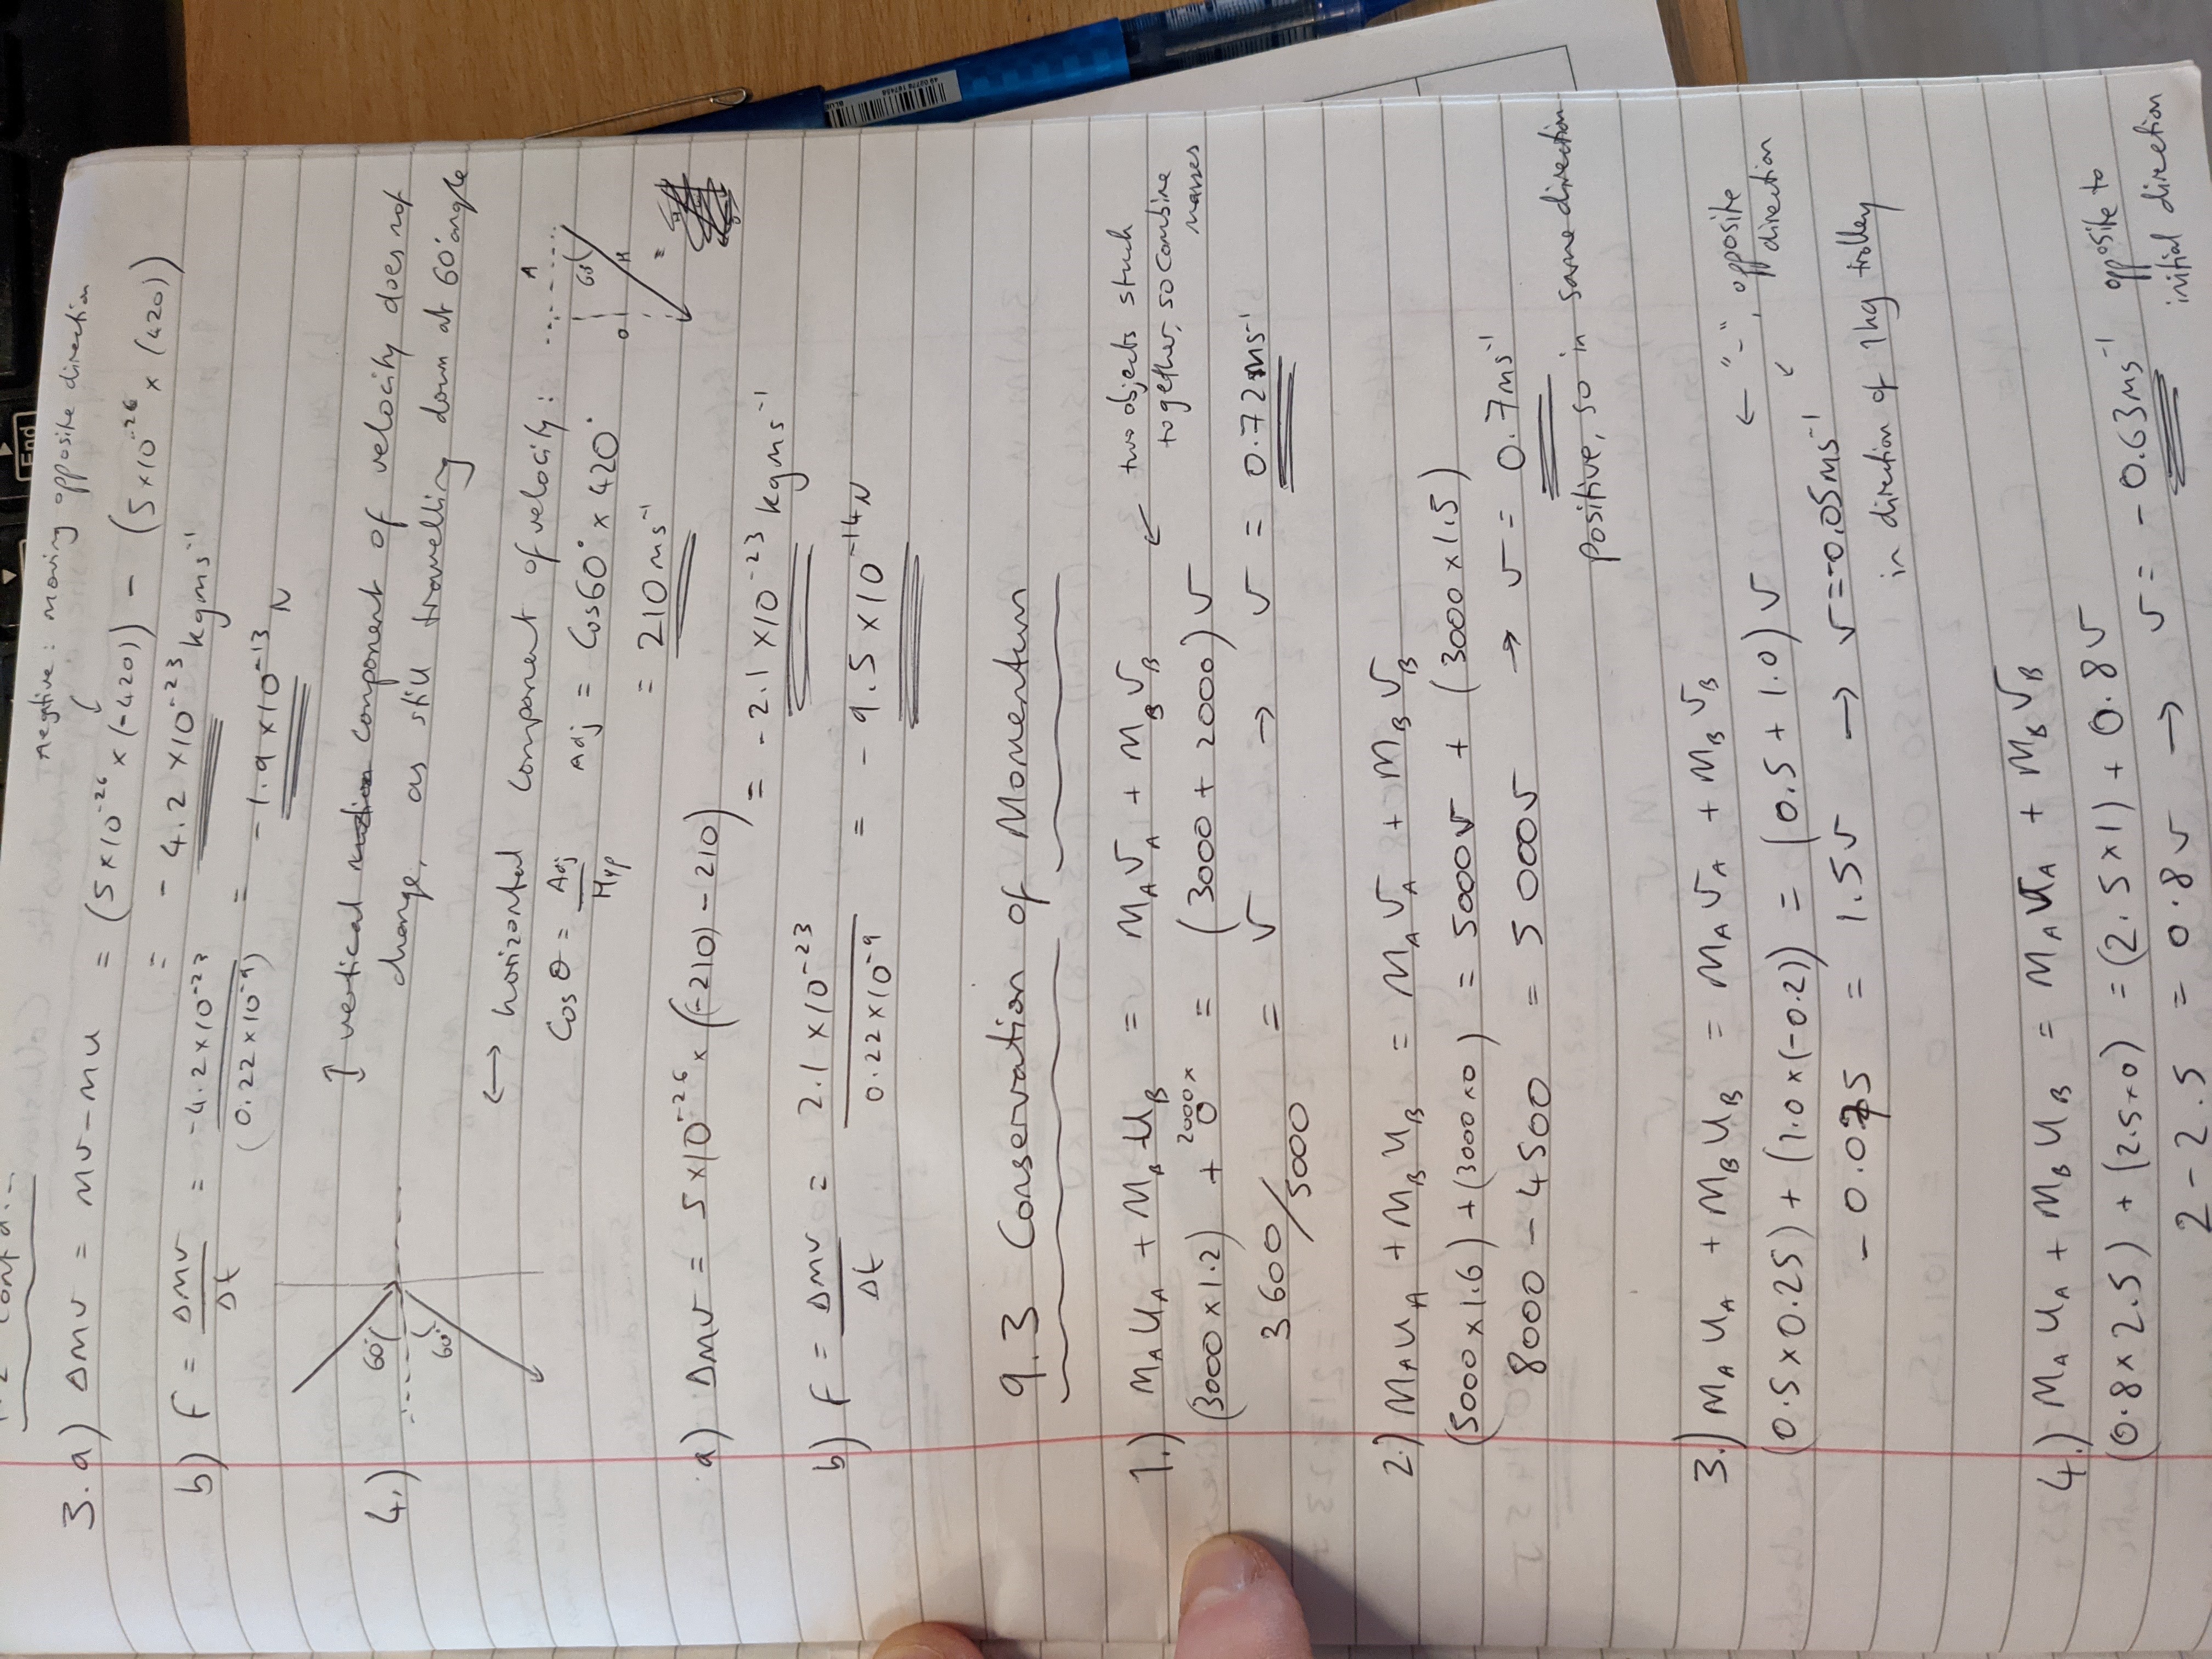 3. a) Δmv = mv - mu = (5×10⁻²⁶ × (-420)) - (5×10⁻²⁶ × (420))
Negative: moving opposite direction
= - 4.2 × 10⁻²³ kgms⁻¹
b) F = Δmv / Δt = -4.2×10⁻²³ / (0.22×10⁻⁹) = -1.9×10⁻¹³ N
4.) ↕ vertical component of velocity does not
change, as still travelling down at 60° angle
60°
60°
↔ horizontal component of velocity:
Cos θ = Adj / Hyp
Adj = Cos60° × 420
= 210 ms⁻¹
A
60°
O
H
=
a) Δmv = 5×10⁻²⁶ × (-210) - 210)
= -2.1 × 10⁻²³ kgms⁻¹
b) F = Δmv / Δt = 2.1×10⁻²³ / 0.22×10⁻⁹ = -9.5×10⁻¹⁴ N
9.3 Conservation of Momentum
1.) mAuA + mBuB = mAvA + mBvB ← two objects stuck
together, so combine
masses
(3000×1.2) + 2000×0 = (3000 + 2000)v
3600/5000 = v → v = 0.72ms⁻¹
2.) mAuA + mBuB = mAvA + mBvB
(5000×1.6) + (3000×0) = 5000v + (3000×1.5)
8000 - 4500 = 5000v → v = 0.7ms⁻¹
Positive, so in same direction
3.) mAuA + mBuB = mAvA + mBvB
(0.5×0.25) + (1.0×(-0.2)) = (0.5 + 1.0)v ← "-", opposite
direction
-0.075 = 1.5v → v=-0.05ms⁻¹
in direction of 1kg trolley
4.) mAuA + mBuB = mAvA + mBvB
(0.8×2.5) + (2.5×0) = (2.5×1) + 0.8v
2 - 2.5 = 0.8v → v = -0.63ms⁻¹ opposite to
initial direction
End
BLUE